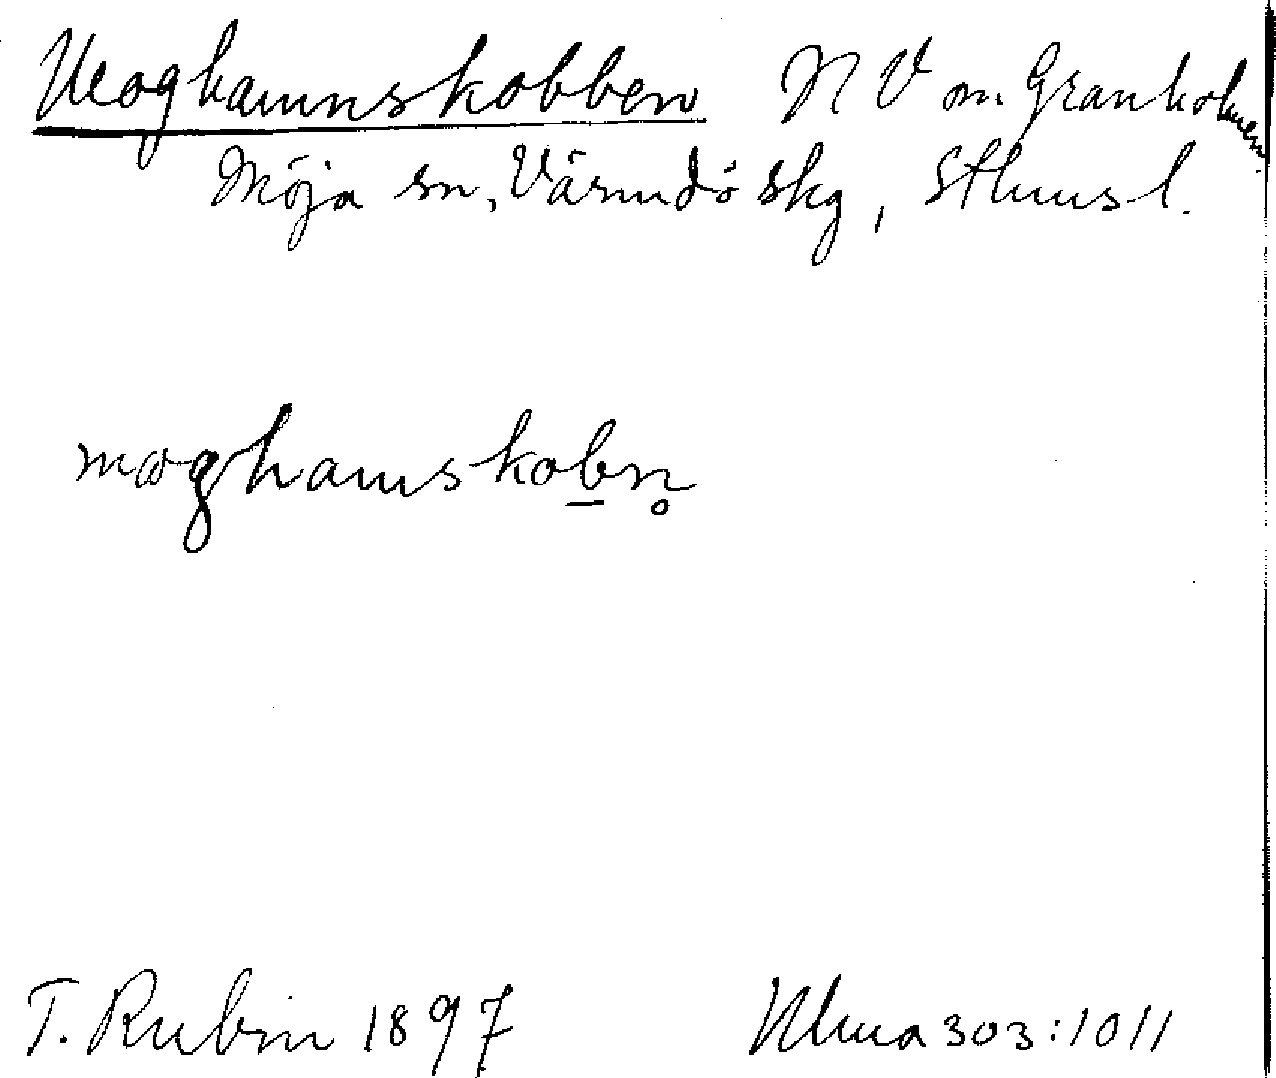 Moghamnskobben NV om Granholmen
Möja sn, Värmdö skg, Sthms l.
moghamskobn̥
T. Rubin 1897 Ulma 303:1011